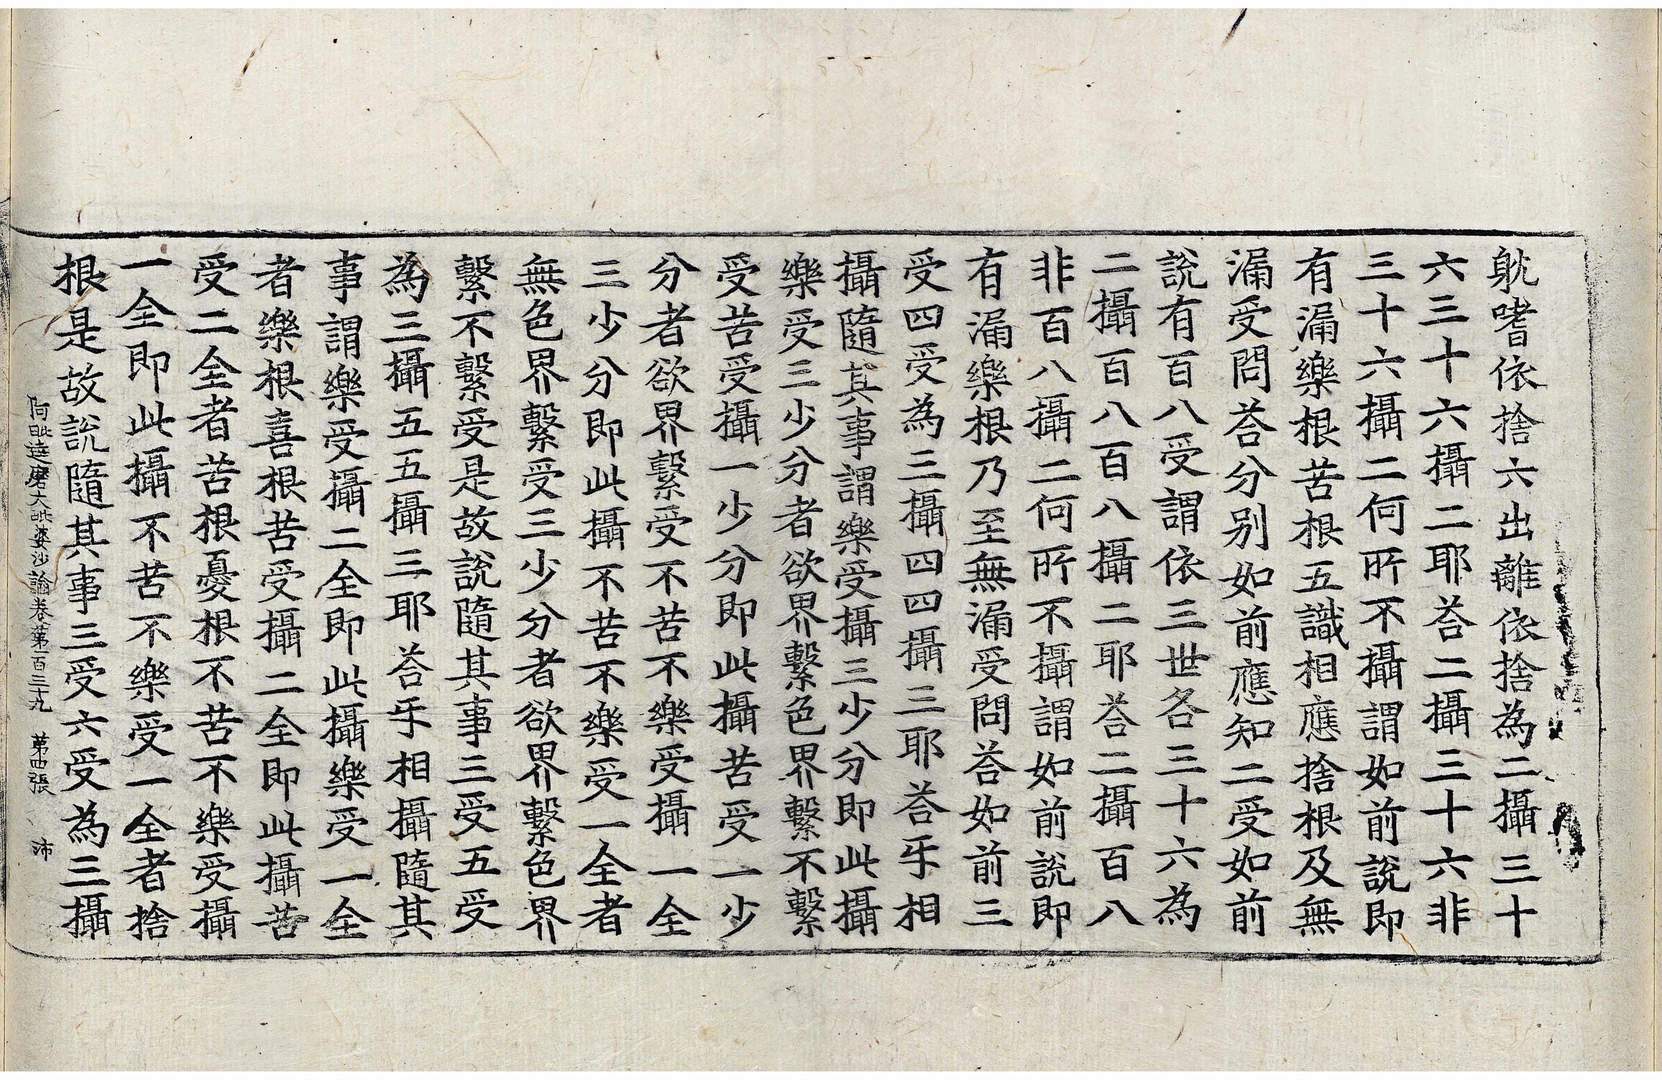 躭嗜依捨六出離依捨為二攝三十
六三十六攝二耶荅二攝三十六非
三十六攝二何所不攝謂如前說即
有漏樂根苦根五識相應捨根及無
漏受問荅分别如前應知二受如前
說有百八受謂依三世各三十六為
二攝百八百八攝二耶荅二攝百八
非百八攝二何所不攝謂如前說即
有漏樂根乃至無漏受問荅如前三
受四受為三攝四四攝三耶荅㸦相
攝隨其事謂樂受攝三少分即此攝
樂受三少分者欲界繫色界繫不繫
受苦受攝一少分即此攝苦受一少
分者欲界繫受不苦不樂受攝一全
三少分即此攝不苦不樂受一全者
無色界繫受三少分者欲界繫色界
繫不繫受是故說隨其事三受五受
為三攝五五攝三耶荅㸦相攝隨其
事謂樂受攝二全即此攝樂受二全
者樂根喜根苦受攝二全即此攝苦
受二全者苦根憂根不苦不樂受攝
一全即此攝不苦不樂受一全者捨
根是故說隨其事三受六受為三攝
阿毗達磨大毗婆沙論卷第百三十九 第四張 沛